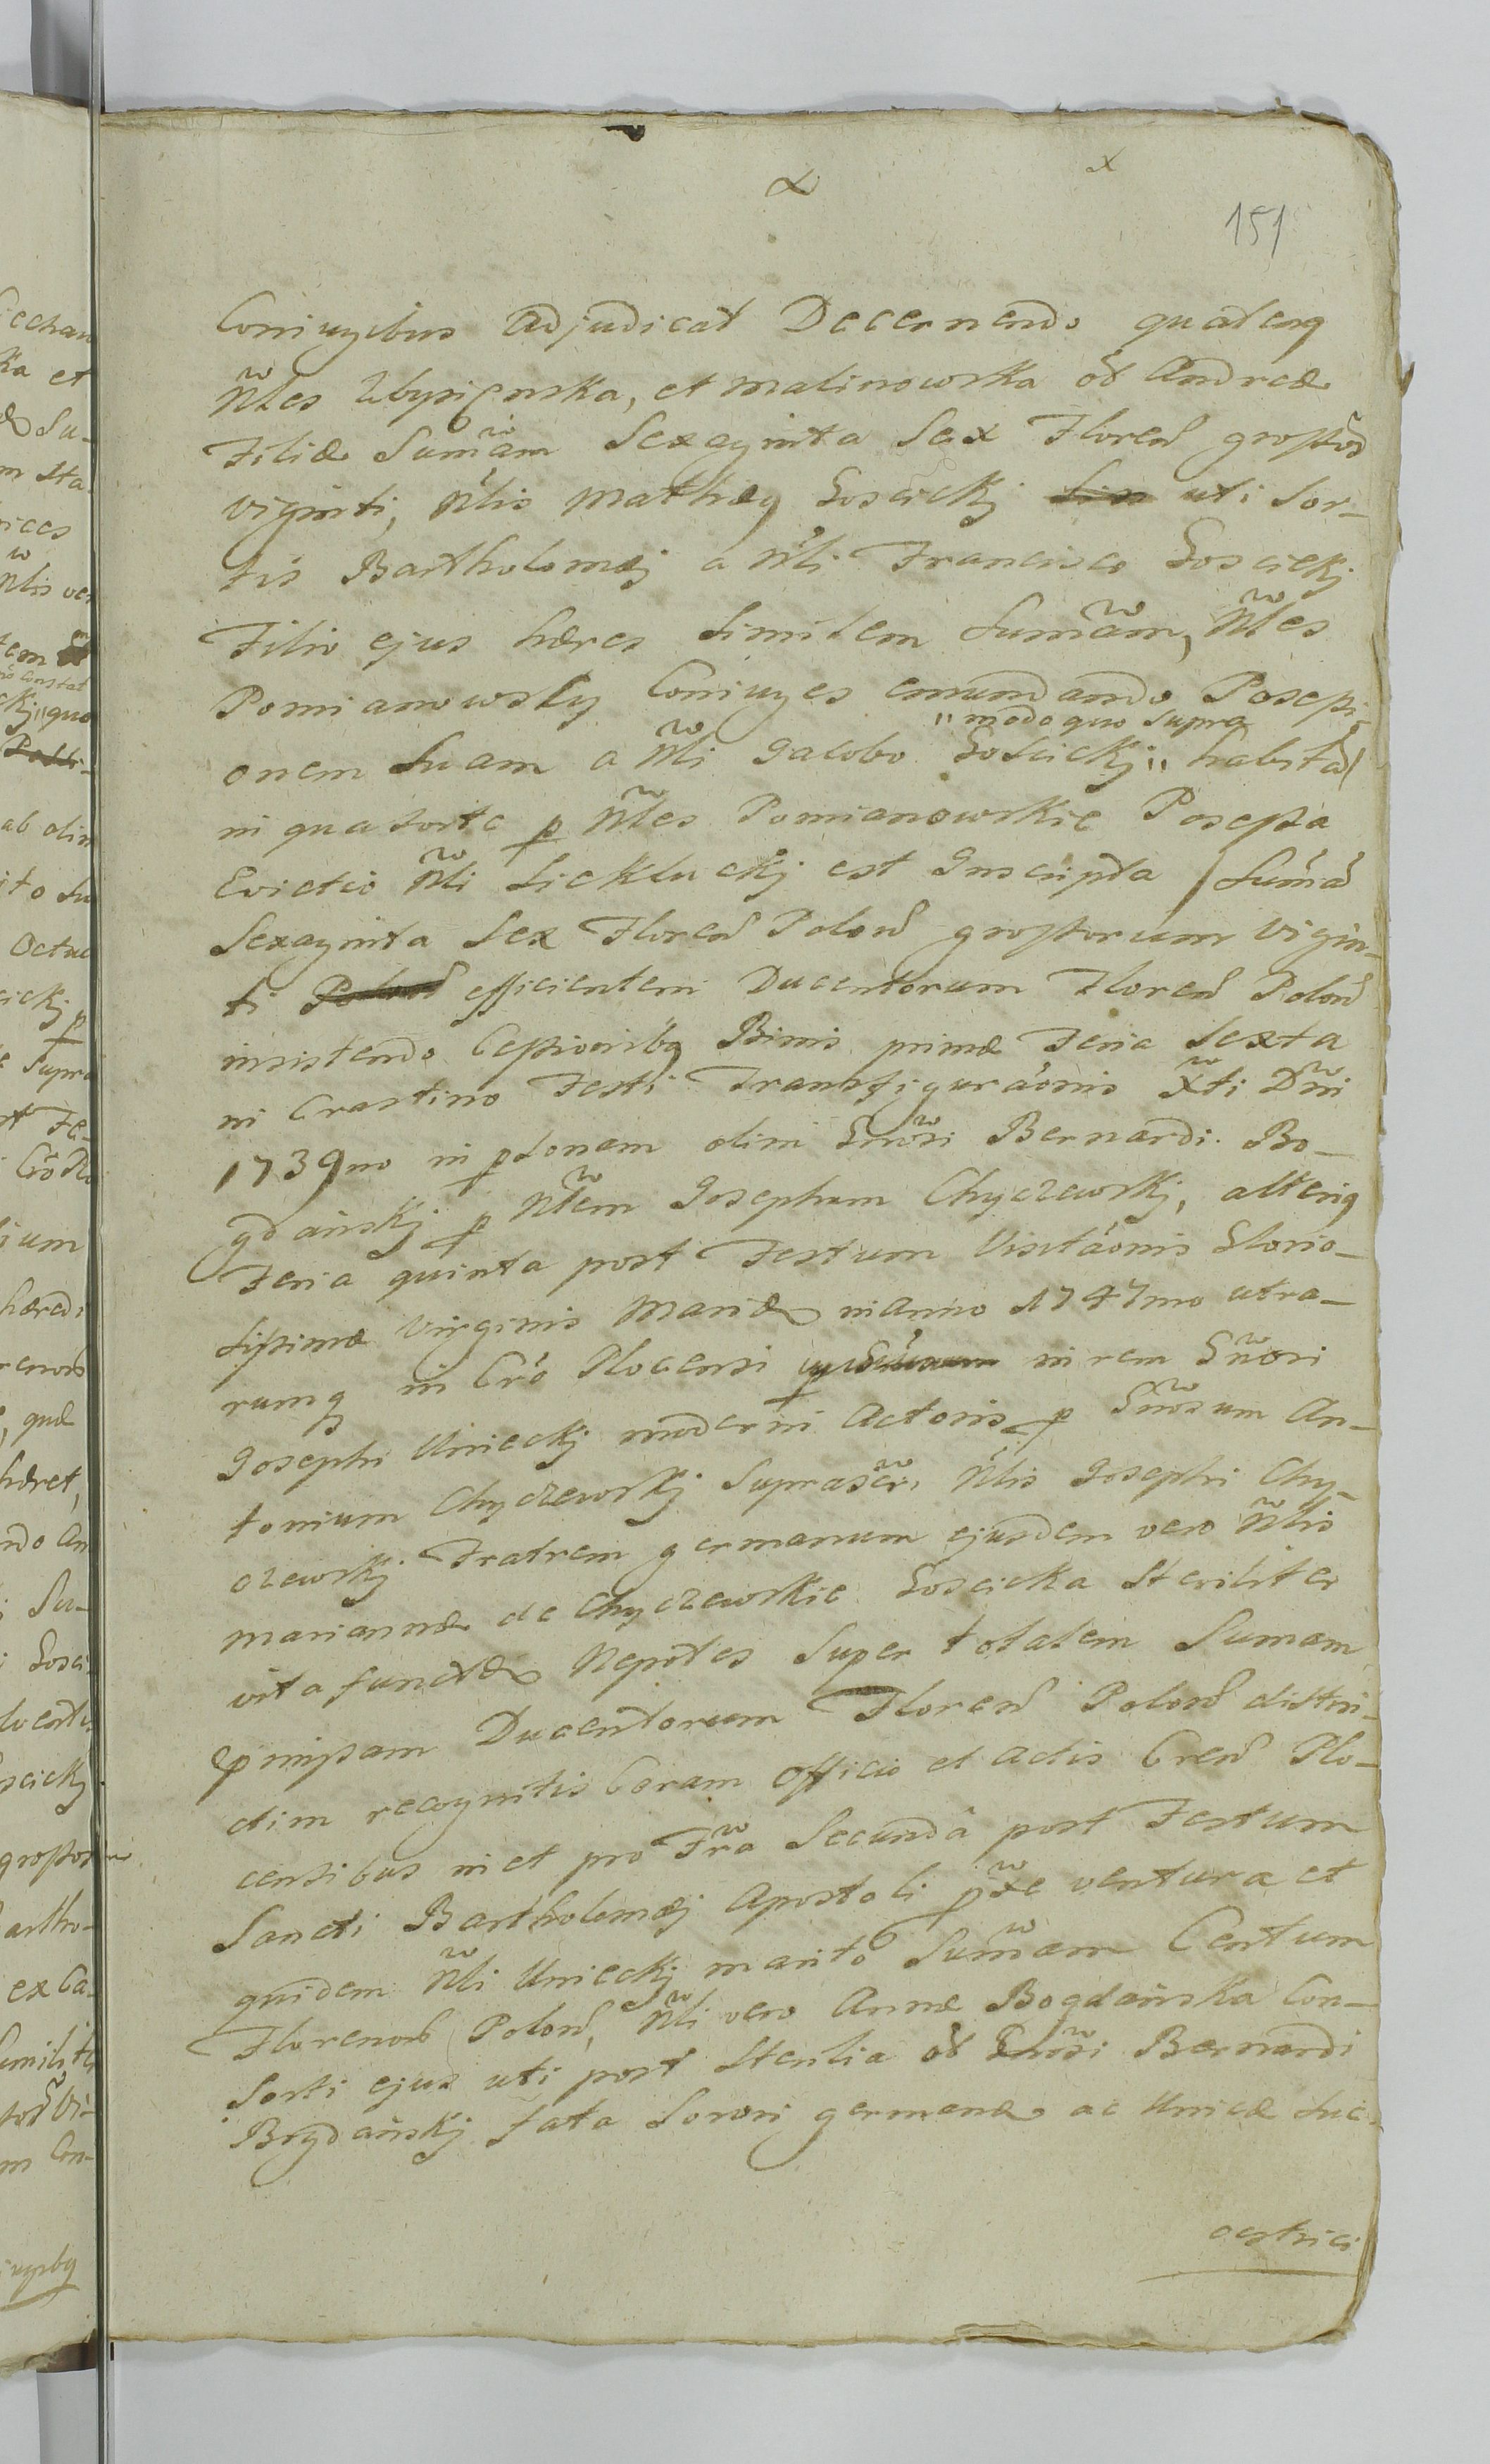 151
Coniugibus adjudicat Decernendo quateng
Nles Zbysienska, et Malinowska ob Andreæ
Filiæ Sumam Sexaginta Sex Floren grossor
viginti, Nlis Mathæg Goscickj uti Sor-
tis Bartholomæj a Nli Francisco Goscickj
Filio ejus hæres Similem Sumam, Nles
Pomianowsky Coniuges emundando Possessi-
"modo quo Supra
onem Suam a Nli Jacobo Goscickj" habita
in qua sorte p Nles Pomianowskie Possessa
Evictio Nli Lickluckj est Inscripta Suma
Sexaginta Sex Floren Polon grossorum Vigin-
ti Polon efficientem Ducentorum Floren Polon
insistendo Cessionibg Binis primæ Feria Sexta
in Crastino Festi Transfiguraonis Xti Dni
1739no in psonam olim Gnosi Bernardi Bo-
gdanskj p Nlem Josephum Chyczewskj, alterig
Feria quinta post Festum Visitaonis Glorio-
sissimæ Virginis Mariæ in Anno 1747mo utra-
rumq in Cro Plocensi in rem Gnosi
Josephi Unieckj moderni Actoris p Gnosum An-
tonium Chyczewskj Suprascri Nlis Josephi Chy-
czewskj Fratrem germanum ejusdem vero Nlis
Mariannæ de Chyczewskie Goscicka Steriliter
vita functæ Nepotes Super totalem Sumam
pmissam Ducentorum Floren Polon distin-
ctim recognitis Coram Officio et Actis Cren Plo-
censibus in et pro Fra Secunda post Festum
Sancti Bartholomæj Apostoli pxe ventura et
quidem Nli Unieckj marito Sumam Centum
Florenor Polon, Nli vero Annæ Bogdanska Con-
Sorti ejus uti post Sterilia ob Gnosi Bernardi
Bogdanskj fata Sorori germanæ ac Unicæ Suc-
cestrici